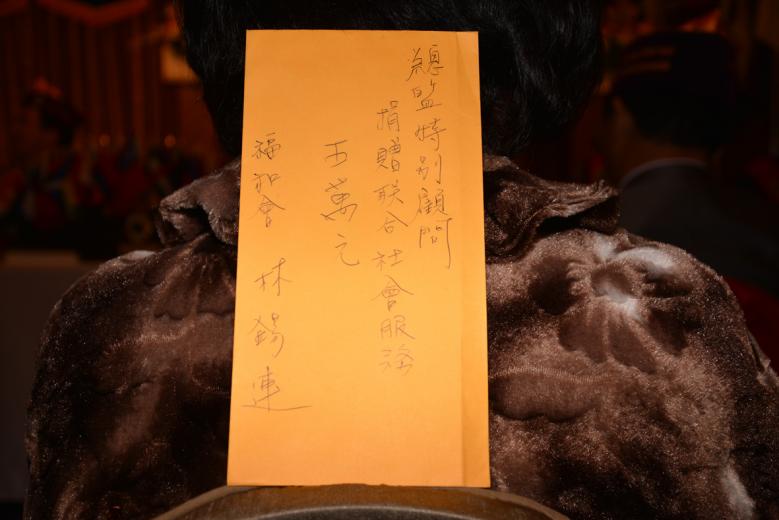 總盟特別顧問
捐贈联合社會服務
五萬元
福和會 林錫連